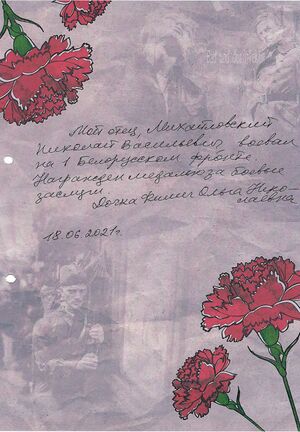 Мой отец, Михайловский
Николай Васильевич, воевал
на 1 Белорусском фронте
Награжден медалью за боевые
заслуги.
Дочка Ольга Нико-
лаевна
18.06.2021г.